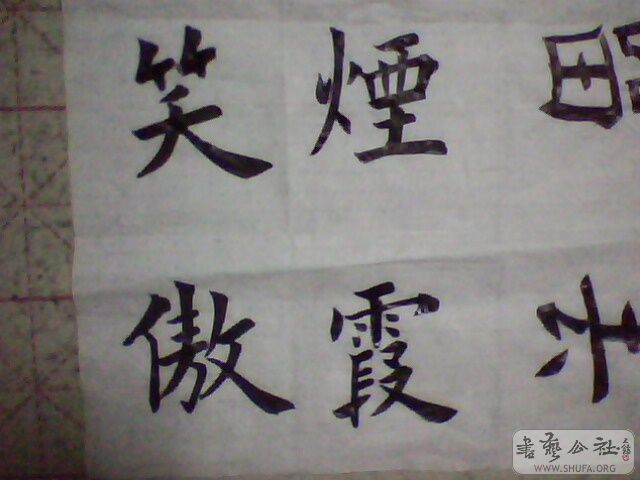 煙霞
笑傲
書藝公社
WWW.SHUFA.ORG